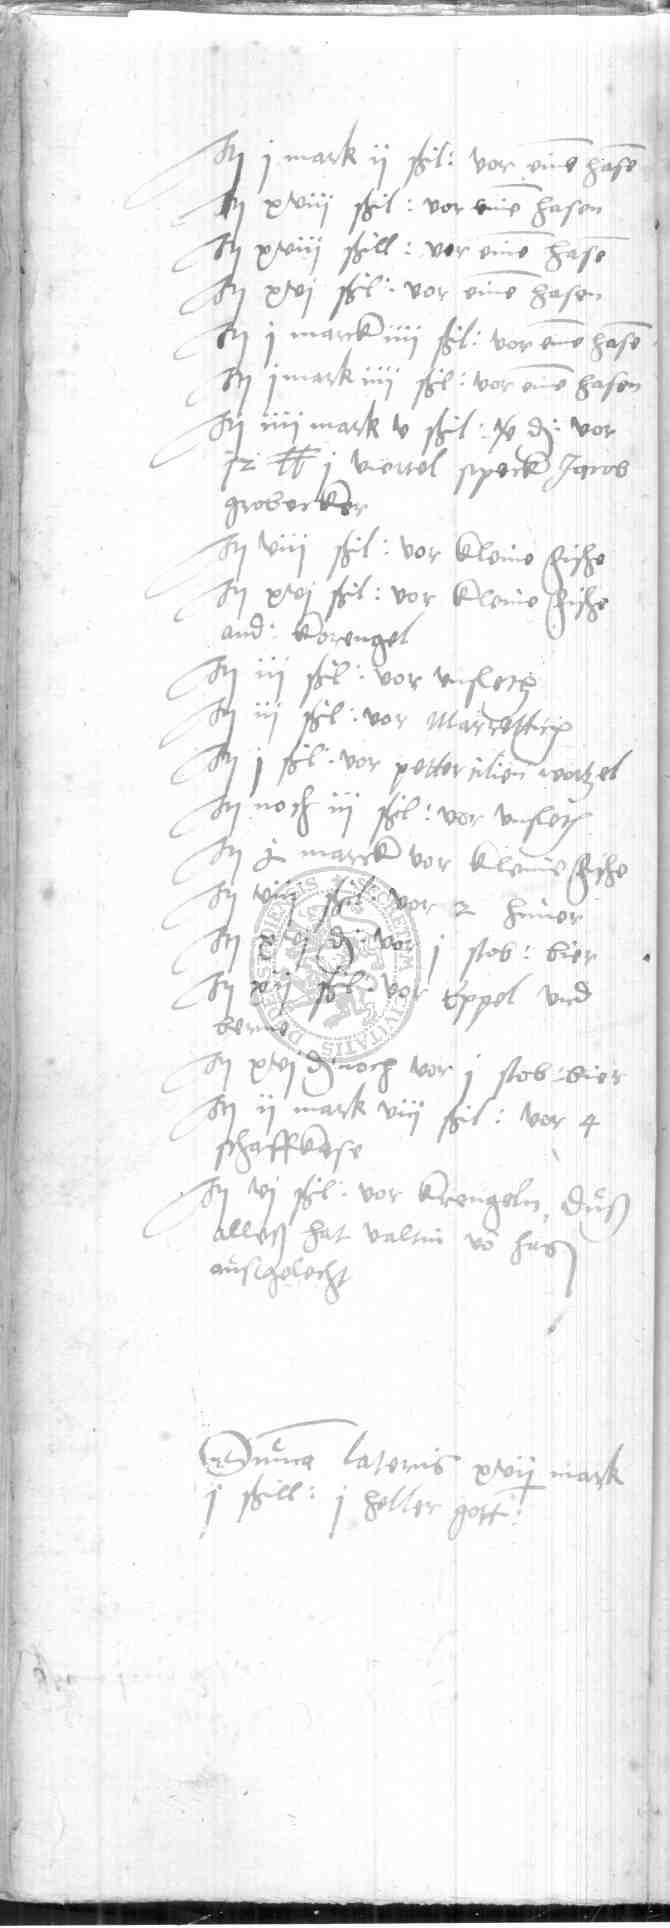 Itẽ j mark ij ßil: vor einẽ hasẽ
Itẽ xviij ßil: vor einẽ hasen
Itẽ xviij ßill: vor einẽ hasẽ
Itẽ xvj ßil: vor einẽ hasen
Itẽ j marck iiij ßil: vor einẽ hasẽ
Itẽ j mark iiij ßil: vor einẽ hasen
Itẽ iiij mark v ßil: vor
j viertel speck Jacob
grobecker
Itẽ viij ßil: vor kleine fische
Itẽ xvj ßil: vor kleine fische
and: korengel
Itẽ iij ßil: vor
Itẽ iij ßil: vor Marrettich
Itẽ j ßil: vor pettersilien wortzel
Itẽ noch iij ßil: vor
Itẽ marck vor kleine fische
Itẽ viij ßil: vor 2 hüner
Itẽ xvj d: vor j stob: bier
Itẽ xij ßil: vor Eppel vnd
berne
Itẽ xvj d: noch vor j stob: bier
Itẽ ij mark viij ßil: vor 4
schaffkese
Itẽ vj ßil: vor krengeln, düß
alleß hat valtin võ
ausgelecht
Summa lateris xvij mark
j ßill: j heller gort:
SECRETVM CIVITATIS DRESDENSIS